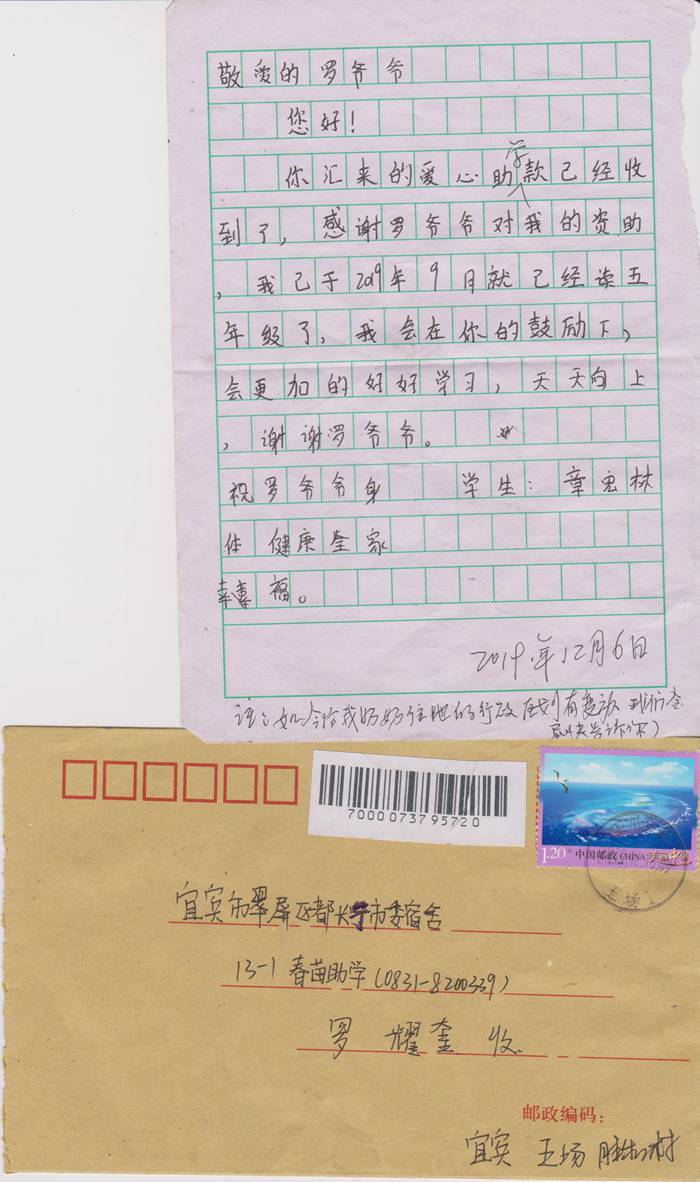 敬爱的罗爷爷
您好!
你汇来的爱心助学款已经收
到了,感谢罗爷爷对我的资助
,我已于2019年9月就已经读五
年级了,我会在你的鼓励下,
会更加的好好学习,天天向上
,谢谢罗爷爷。
祝罗爷爷身 学生:章宏林
体 健康全家
幸福。
2019年12月6日
注:如今后我妈妈住地的行政区划有变动 我们会
尽快告诉你)
7000073795720
1.20 中国邮政 CHINA 美丽中国
王场
宜宾市翠屏区都长街市委宿舍
13-1 春苗助学(0831-8200339)
罗耀奎 收
邮政编码:
宜宾 王场 胜利村